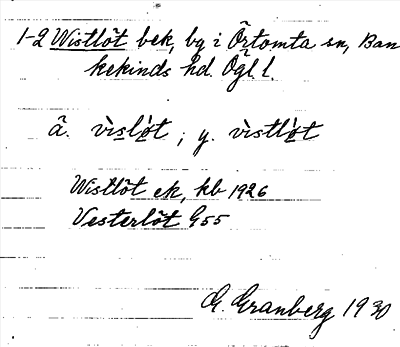 1-2 Wistlöt bek, by i Örtomta sn, Ban
kekinds hd. Ögl.
ä. vìslö̀t ; y. vìstlö̀t
Wistlöt ek, kb 1926
Vesterlöt G55
G. Granberg 1930